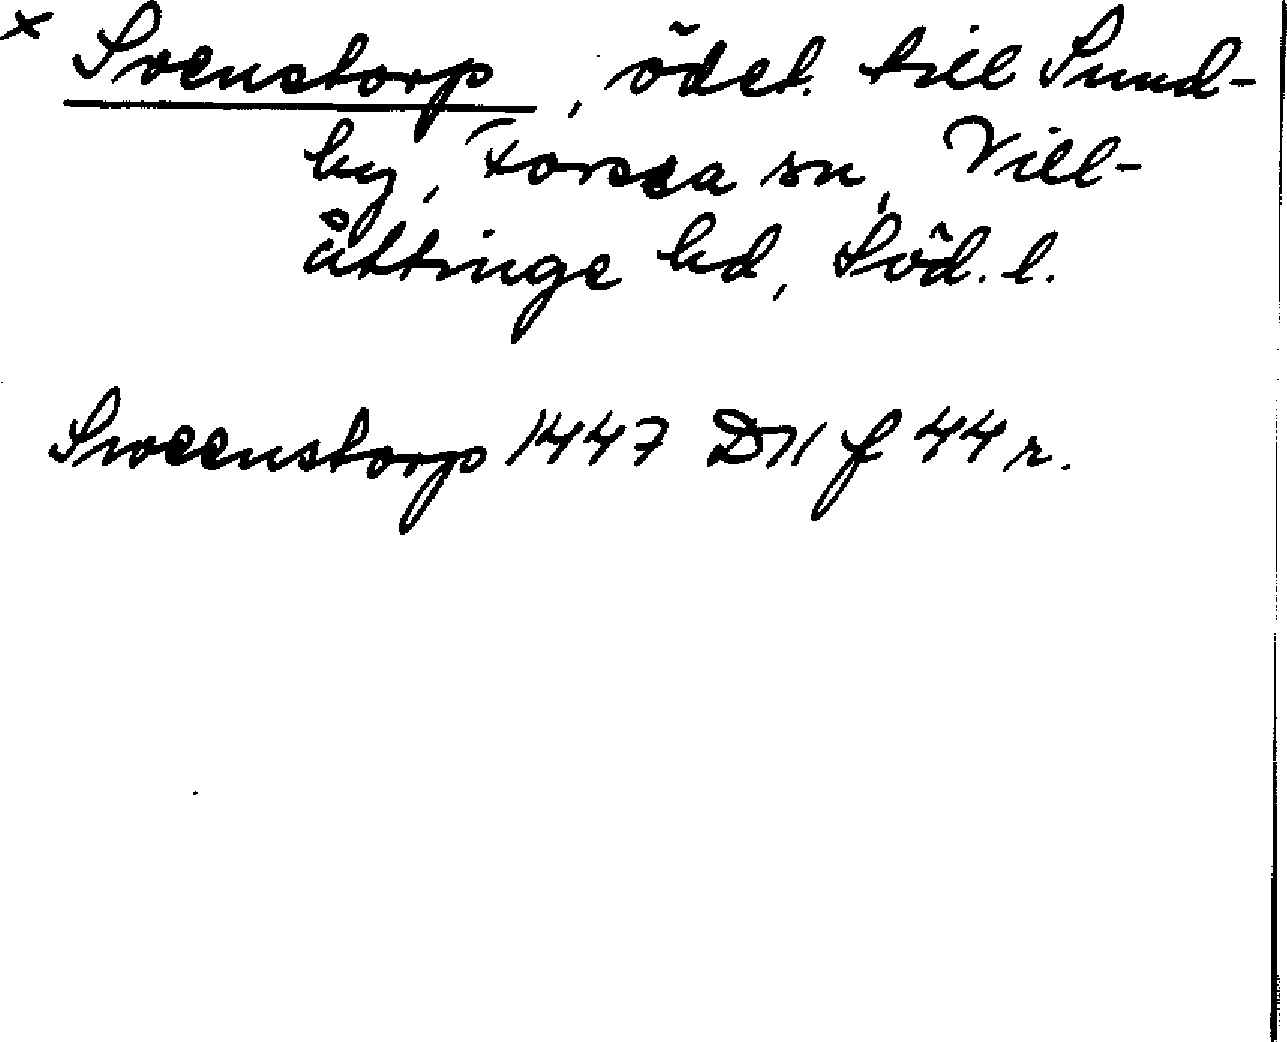 × Svenstorp, ödet. till Sund-
by, Forssa sn, Vill-
åttinge hd, Söd. l.
Sweenstorp 1447 D11 f 44 r.